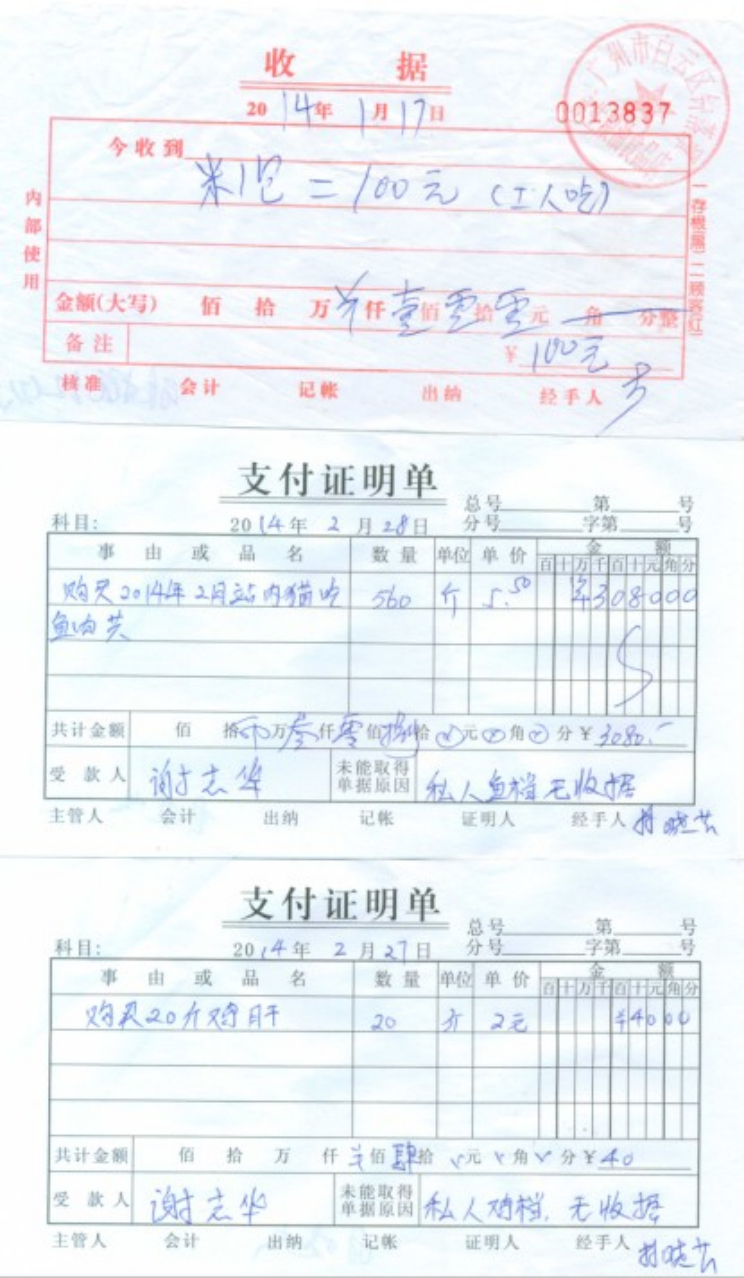 收 据
2014年1月17日 0013837
今收到
米1包 = 100元 (工人吃)
内部使用
一存根(黑) 二顾客(红)
金额(大写) 佰 拾 万 仟 壹 佰 零 拾 零 元 角 分整
备注 ¥ 100元
核准 会计 记帐 出纳 经手人
支付证明单
总号 第 号
科目: 2014年 2月 28日 分号 字第 号
事 由 或 品 名 数量 单位 单价 金 额
百 十 万 千 百 十 元 角 分
购买2014年2月站内猫吃 560 斤 5.50 ¥308000
鱼肉共
共计金额 佰 拾 万 叁 仟 零 佰 捌 拾 0 元 0 角 0 分 ¥ 3080.-
受款人 谢志华 未能取得单据原因 私人鱼档无收据
主管人 会计 出纳 记帐 证明人 经手人
支付证明单
总号 第 号
科目: 2014年 2月 27日 分号 字第 号
事 由 或 品 名 数量 单位 单价 金 额
百 十 万 千 百 十 元 角 分
购买20斤鸡肝 20 斤 2元 ¥4000
共计金额 佰 拾 万 仟 佰 肆 拾 元 角 分 ¥ 40
受款人 谢志华 未能取得单据原因 私人鸡档,无收据
主管人 会计 出纳 记帐 证明人 经手人